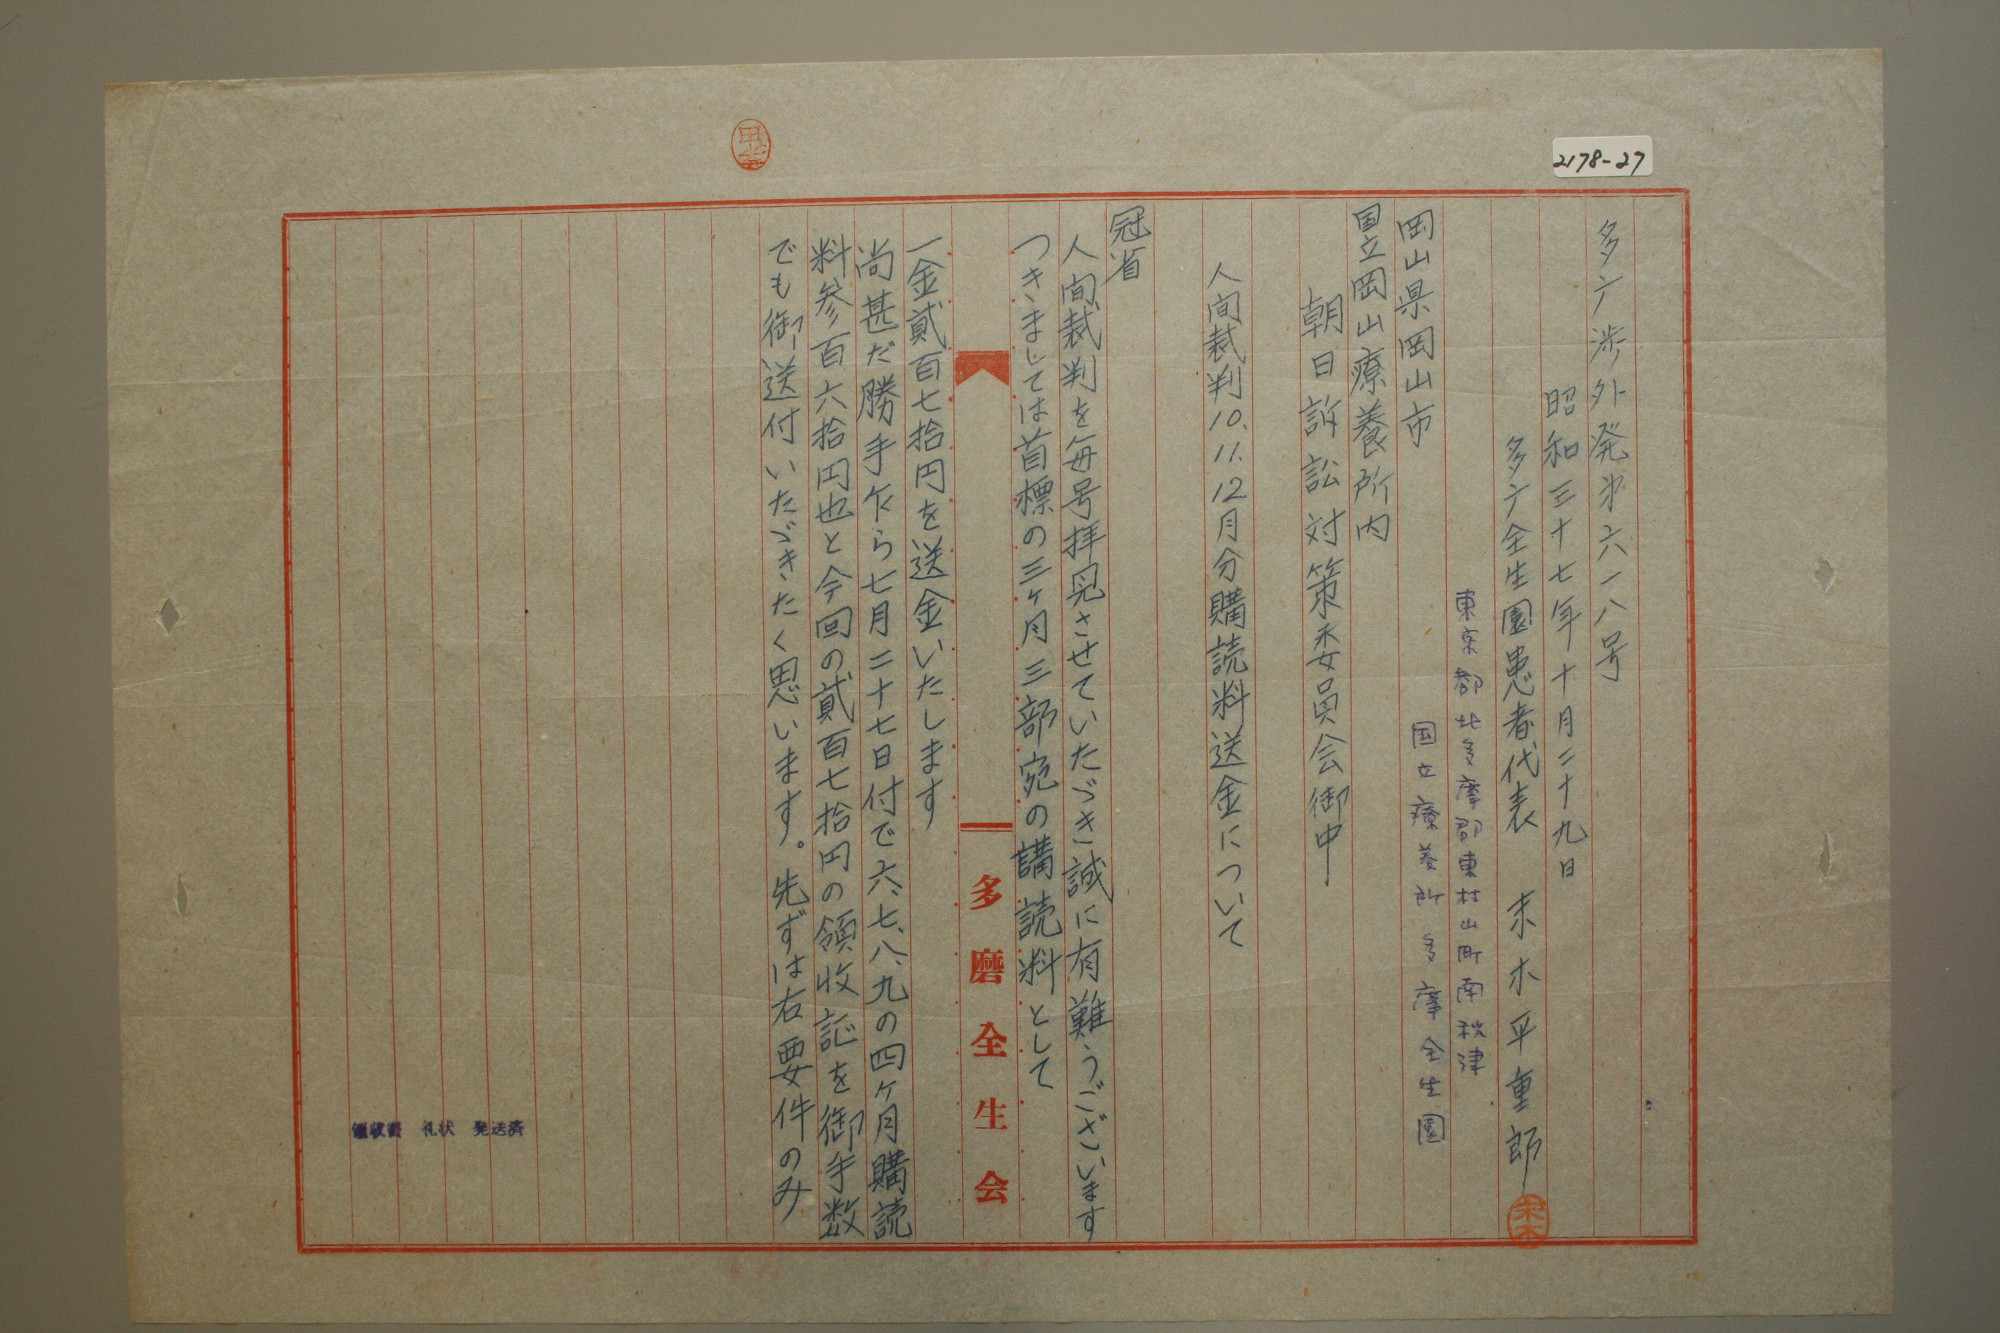 2178-27
多广渉外発オ六一八号
昭和三十七年十月二十九日
多广全生園患者代表 末木平重郎
東京都北多摩郡東村山町南秋津
国立療養所多摩全生園
岡山県岡山市
国立岡山療養所内
朝日訴訟対策委員会御中
人間裁判10.11.12月分購読料送金について
冠省
人間裁判を毎号拝見させていたゞき誠に有難うございます
つきましては首標の三ヶ月三部宛の講読料として
多磨全生会
一金貳百七拾円を送金いたします
尚甚だ勝手乍ら七月二十七日付で六、七、八、九の四ヶ月購読
料参百六拾円也と今回の貳百七拾円の領収証を御手数
でも御送付いたゞきたく思います。先ずは右要件のみ
領収書 礼状 発送済